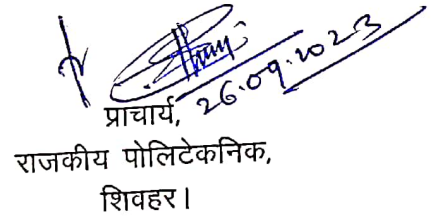 26.09.2023
प्राचार्य,
राजकीय पोलिटेकनिक,
शिवहर।